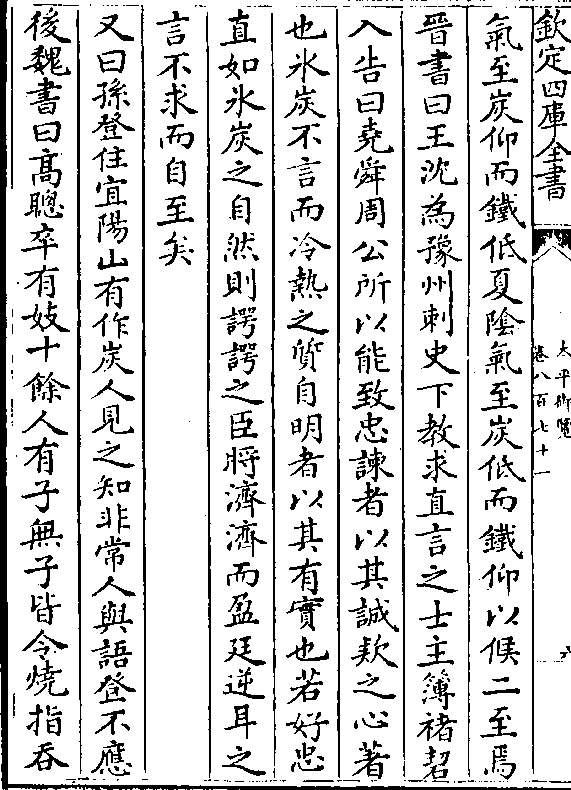 欽定四庫全書
太平御覽
卷八百七十一
氣至炭仰而鐵低夏陰氣至炭低而鐵仰以候二至焉
晉書曰王沈為豫州刺史下教求直言之士主簿褚䂮
入告曰堯舜周公所以能致忠諫者以其誠欵之心著
也氷炭不言而冷熱之質自明者以其有實也若好忠
直如氷炭之自然則諤諤之臣將濟濟而盈廷逆耳之
言不求而自至矣
又曰孫登住宜陽山有作炭人見之知非常人與語登不應
後魏書曰高聰卒有妓十餘人有子無子皆令燒指吞